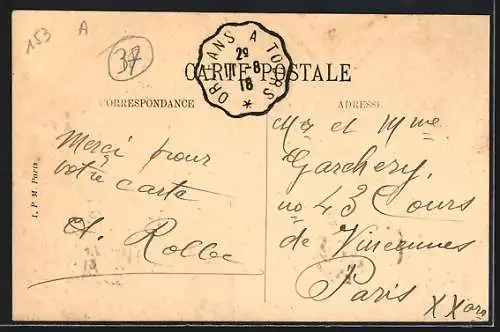 153 A
37
ORLEANS A TOURS
29
11 -8
18
*
CARTE POSTALE
CORRESPONDANCE
ADRESSE
Merçi pour
votre carte
A. Rolbe
Mr et Mme
Garchery,
no 43 Cours
de Vincennes
Paris
XXars
L. P. M. Paris